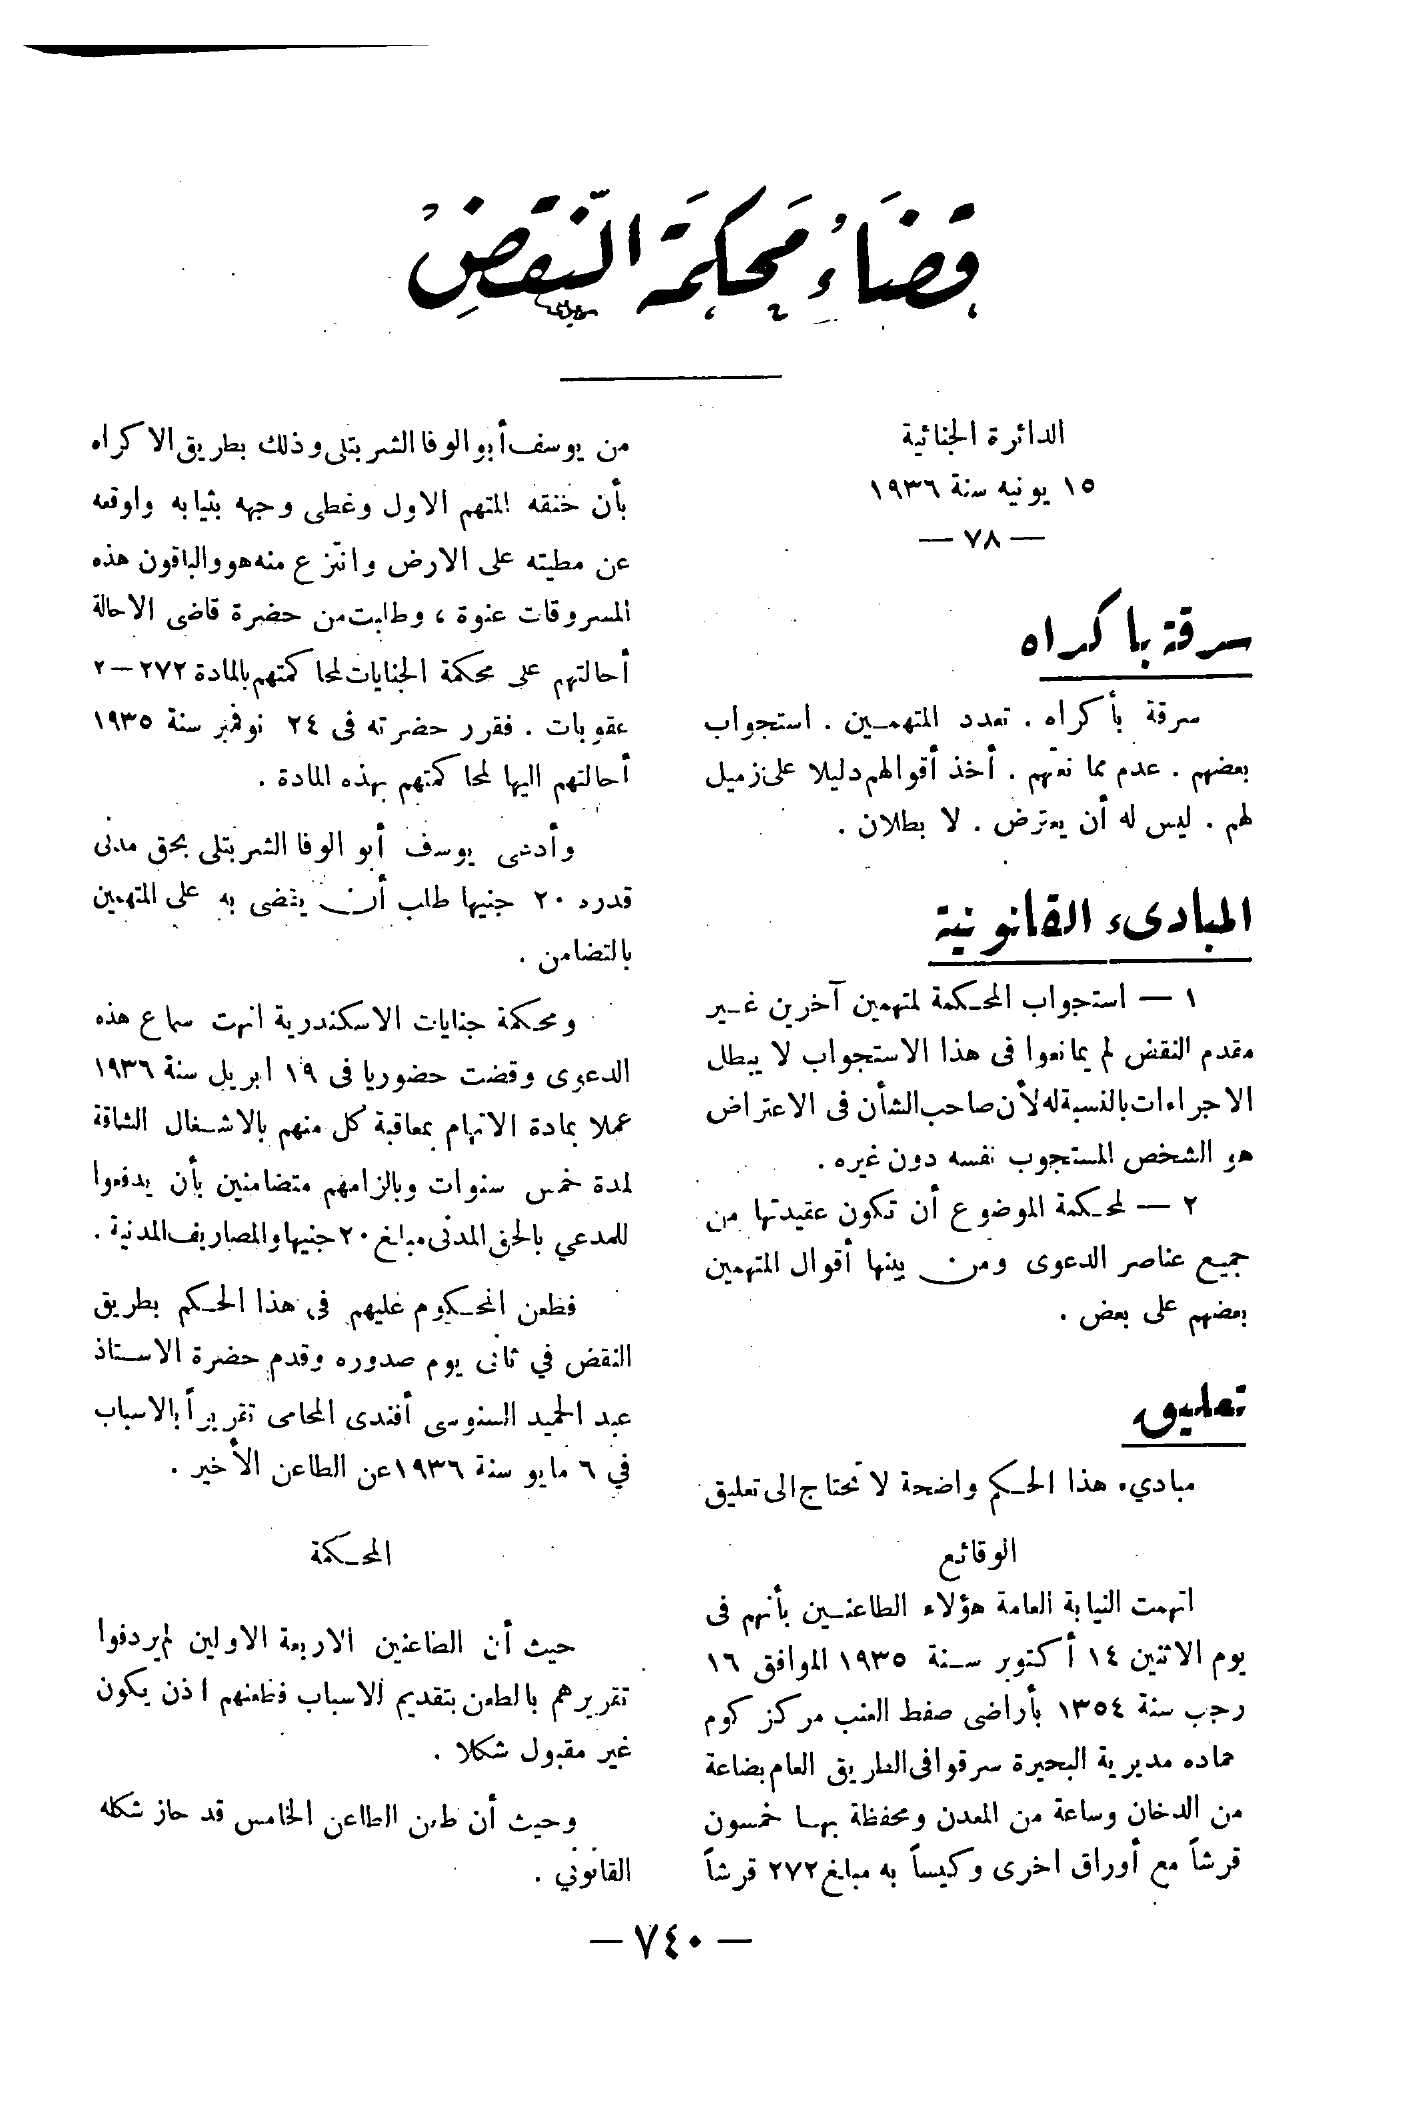 قضاء محكمة النقض
الدائرة الجنائية
١٥ يونيه سنة ١٩٣٦
— ٧٨ —
سرقة باكراه
سرقة بأكراه . تعدد المتهمين . استجواب
بعضهم . عدم ممانعتهم . أخذ أقوالهم دليلا على زميل
لهم . ليس له أن يعترض . لا بطلان .
المبادىء القانونية
١ — استجواب المحكمة لمتهمين آخرين غير
مقدم النقض لم يمانعوا فى هذا الاستجواب لا يبطل
الاجراءات بالنسبة له لأن صاحب الشأن فى الاعتراض
هو الشخص المستجوب نفسه دون غيره .
٢ — لمحكمة الموضوع أن تكون عقيدتها من
جميع عناصر الدعوى ومن بينها أقوال المتهمين
بعضهم على بعض .
تعليق
مباديء هذا الحكم واضحة لا تحتاج الى تعليق
الوقائع
اتهمت النيابة العامة هؤلاء الطاعنين بأنهم فى
يوم الاثنين ١٤ أكتوبر سنة ١٩٣٥ الموافق ١٦
رجب سنة ١٣٥٤ بأراضى صفط العنب مركز كوم
حماده مديرية البحيرة سرقوا فى الطريق العام بضاعة
من الدخان وساعة من المعدن ومحفظة بها خمسون
قرشاً مع أوراق اخرى وكيساً به مبلغ ٢٧٢ قرشاً
من يوسف أبو الوفا الشربتلى وذلك بطريق الاكراه
بأن خنقه المتهم الاول وغطى وجهه بثيابه واوقعه
عن مطيته على الارض وانتزع منه هو والباقون هذه
المسروقات عنوة ، وطلبت من حضرة قاضى الاحالة
أحالتهم على محكمة الجنايات لمحاكمتهم بالمادة ٢٧٢—٢
عقوبات . فقرر حضرته فى ٢٤ نوفمبر سنة ١٩٣٥
أحالتهم اليها لمحاكمتهم بهذه المادة .
وأدعى يوسف أبو الوفا الشربتلى بحق مدنى
قدره ٢٠ جنيها طلب أن يقضى به على المتهمين
بالتضامن .
ومحكمة جنايات الاسكندرية انهت سماع هذه
الدعوى وقضت حضوريا فى ١٩ ابريل سنة ١٩٣٦
عملا بمادة الاتهام بمعاقبة كل منهم بالاشغال الشاقة
لمدة خمس سنوات وبالزامهم متضامنين بأن يدفعوا
للمدعي بالحق المدنى مبلغ ٢٠ جنيها والمصاريف المدنية .
فطعن المحكوم عليهم فى هذا الحكم بطريق
النقض في ثانى يوم صدوره وقدم حضرة الاستاذ
عبد الحميد السنوسى أفندى المحامى تقريراً بالاسباب
في ٦ مايو سنة ١٩٣٦ عن الطاعن الأخير .
المحكمة
حيث أن الطاعنين الاربعة الاولين لم يردفوا
تقريرهم بالطعن بتقديم الاسباب فطعنهم اذن يكون
غير مقبول شكلا .
وحيث أن طعن الطاعن الخامس قد حاز شكله
القانوني .
— ٧٤٠ —